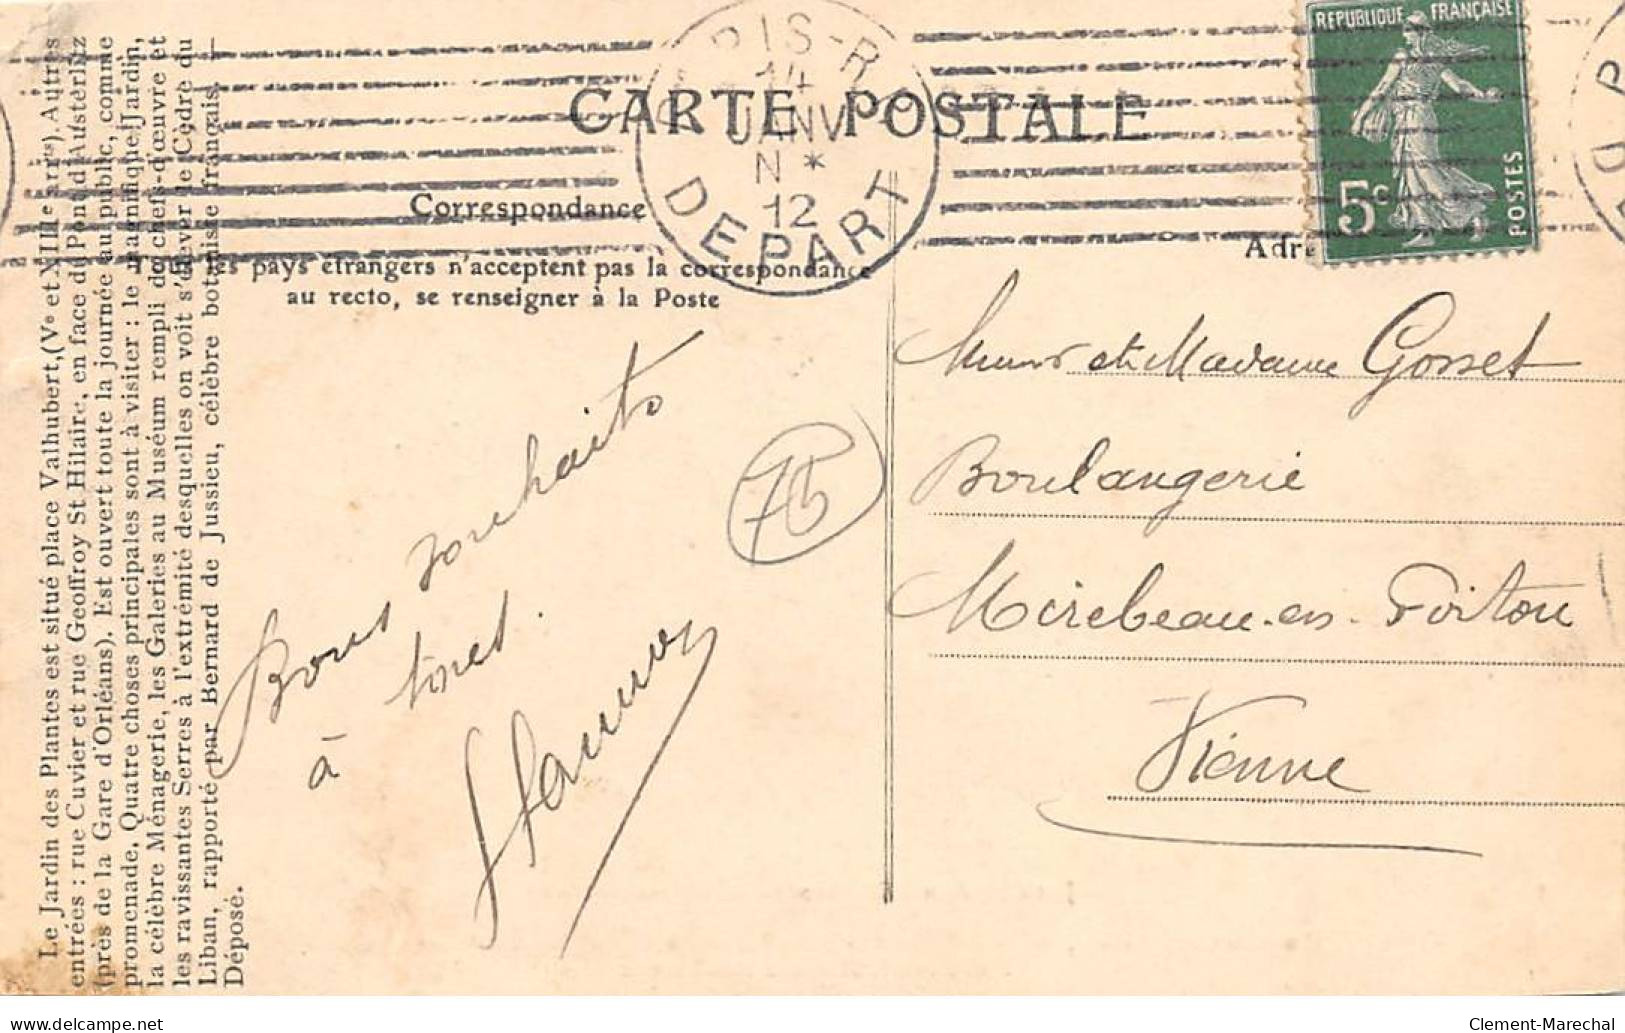 CARTE POSTALE
Correspondance
Adre
pays étrangers n'acceptent pas la correspondance
au recto, se renseigner à la Poste
RÉPUBLIQUE FRANÇAISE
5c
POSTES
14
JANV
N *
12
DEPART
Le Jardin des Plantes est situé place Valhubert, (Ve et XIIIe arrts). Autres
entrées : rue Cuvier et rue Geoffroy St Hilaire, en face du Pond d'Austerlitz
(près de la Gare d'Orléans). Est ouvert toute la journée au public, comme
promenade. Quatre choses principales sont à visiter : le magnifique Jardin,
la célèbre Ménagerie, les Galeries au Muséum rempli de chefs-d'œuvre et
les ravissantes Serres à l'extrémité desquelles on voit s'élever le Cèdre du
Liban, rapporté par Bernard de Jussieu, célèbre botaniste français. —
Déposé.
Bons souhaits
à tous.
75
et Madame Gosset
Boulangerie
Mirebeau-en-Poitou
Vienne
www.delcampe.net
Clement-Marechal